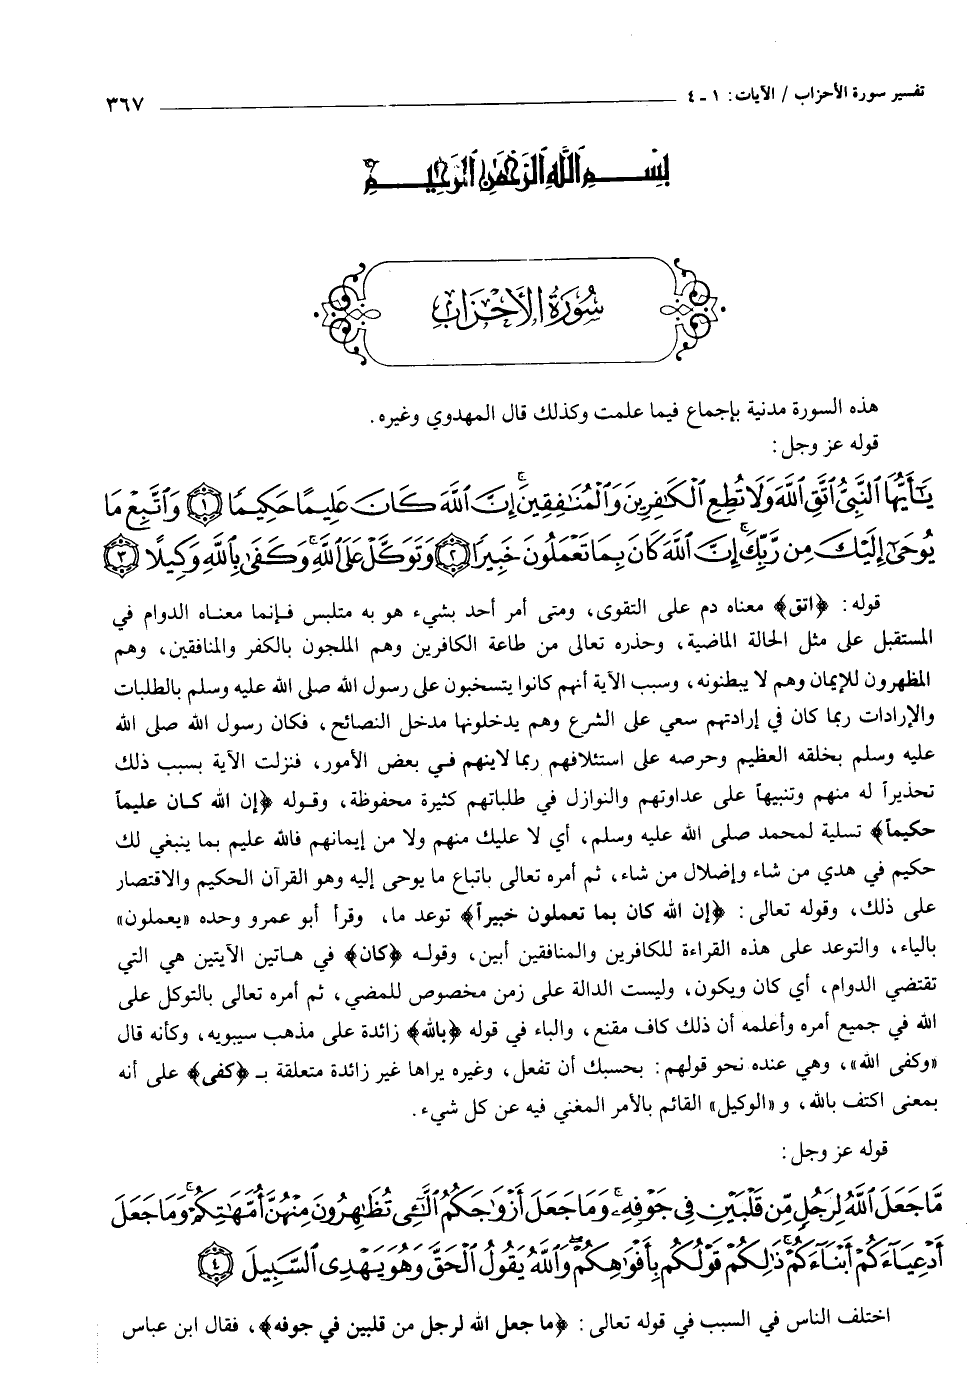 تفسير سورة الأحزاب / الآيات: ١ ـ ٤ ٣٦٧
بِسْمِ اللَّهِ الرَّحْمَنِ الرَّحِيمِ
سُورَةُ الأَحْزَابِ
هذه السورة مدنية بإجماع فيما علمت وكذلك قال المهدوي وغيره.
قوله عز وجل:
يَٰٓأَيُّهَا ٱلنَّبِىُّ ٱتَّقِ ٱللَّهَ وَلَا تُطِعِ ٱلْكَٰفِرِينَ وَٱلْمُنَٰفِقِينَ ۚ إِنَّ ٱللَّهَ كَانَ عَلِيمًا حَكِيمًا ﴿١﴾ وَٱتَّبِعْ مَا
يُوحَىٰٓ إِلَيْكَ مِن رَّبِّكَ ۚ إِنَّ ٱللَّهَ كَانَ بِمَا تَعْمَلُونَ خَبِيرًا ﴿٢﴾ وَتَوَكَّلْ عَلَى ٱللَّهِ ۚ وَكَفَىٰ بِٱللَّهِ وَكِيلًا ﴿٣﴾
قوله: ﴿اتق﴾ معناه دم على التقوى، ومتى أمر أحد بشيء هو به متلبس فإنما معناه الدوام في
المستقبل على مثل الحالة الماضية، وحذره تعالى من طاعة الكافرين وهم الملجون بالكفر والمنافقين، وهم
المظهرون للإيمان وهم لا يبطنونه، وسبب الآية أنهم كانوا يتسخبون على رسول الله صلى الله عليه وسلم بالطلبات
والإرادات ربما كان في إرادتهم سعي على الشرع وهم يدخلونها مدخل النصائح، فكان رسول الله صلى الله
عليه وسلم بخلقه العظيم وحرصه على استئلافهم ربما لاينهم في بعض الأمور، فنزلت الآية بسبب ذلك
تحذيراً له منهم وتنبيهاً على عداوتهم والنوازل في طلباتهم كثيرة محفوظة، وقوله ﴿إن الله كان عليماً
حكيماً﴾ تسلية لمحمد صلى الله عليه وسلم، أي لا عليك منهم ولا من إيمانهم فالله عليم بما ينبغي لك
حكيم في هدي من شاء وإضلال من شاء، ثم أمره تعالى باتباع ما يوحى إليه وهو القرآن الحكيم والاقتصار
على ذلك، وقوله تعالى: ﴿إن الله كان بما تعملون خبيراً﴾ توعد ما، وقرأ أبو عمرو وحده «يعملون»
بالياء، والتوعد على هذه القراءة للكافرين والمنافقين أبين، وقوله ﴿كان﴾ في هاتين الآيتين هي التي
تقتضي الدوام، أي كان ويكون، وليست الدالة على زمن مخصوص للمضي، ثم أمره تعالى بالتوكل على
الله في جميع أمره وأعلمه أن ذلك كاف مقنع، والباء في قوله ﴿بالله﴾ زائدة على مذهب سيبويه، وكأنه قال
«وكفى الله»، وهي عنده نحو قولهم: بحسبك أن تفعل، وغيره يراها غير زائدة متعلقة بـ ﴿كفى﴾ على أنه
بمعنى اكتف بالله، و «الوكيل» القائم بالأمر المغني فيه عن كل شيء.
قوله عز وجل:
مَّا جَعَلَ ٱللَّهُ لِرَجُلٍ مِّن قَلْبَيْنِ فِى جَوْفِهِۦ ۚ وَمَا جَعَلَ أَزْوَٰجَكُمُ ٱلَّٰٓـِٔى تُظَٰهِرُونَ مِنْهُنَّ أُمَّهَٰتِكُمْ ۚ وَمَا جَعَلَ
أَدْعِيَآءَكُمْ أَبْنَآءَكُمْ ۚ ذَٰلِكُمْ قَوْلُكُم بِأَفْوَٰهِكُمْ ۖ وَٱللَّهُ يَقُولُ ٱلْحَقَّ وَهُوَ يَهْدِى ٱلسَّبِيلَ ﴿٤﴾
اختلف الناس في السبب في قوله تعالى: ﴿ما جعل الله لرجل من قلبين في جوفه﴾، فقال ابن عباس